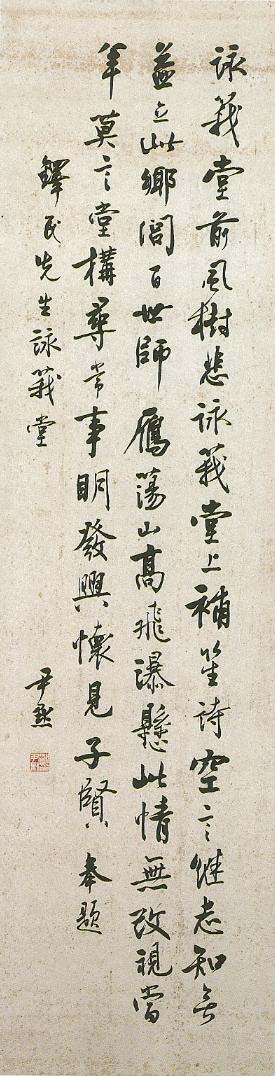 詠莪堂前風樹悲詠莪堂上補笙詩空言繼志知無
益立此鄉閭百世師雁蕩山高飛瀑懸此情無改視當
年莫言堂構尋常事明發興懷見子賢 奉題
鐸民先生詠莪堂
尹默